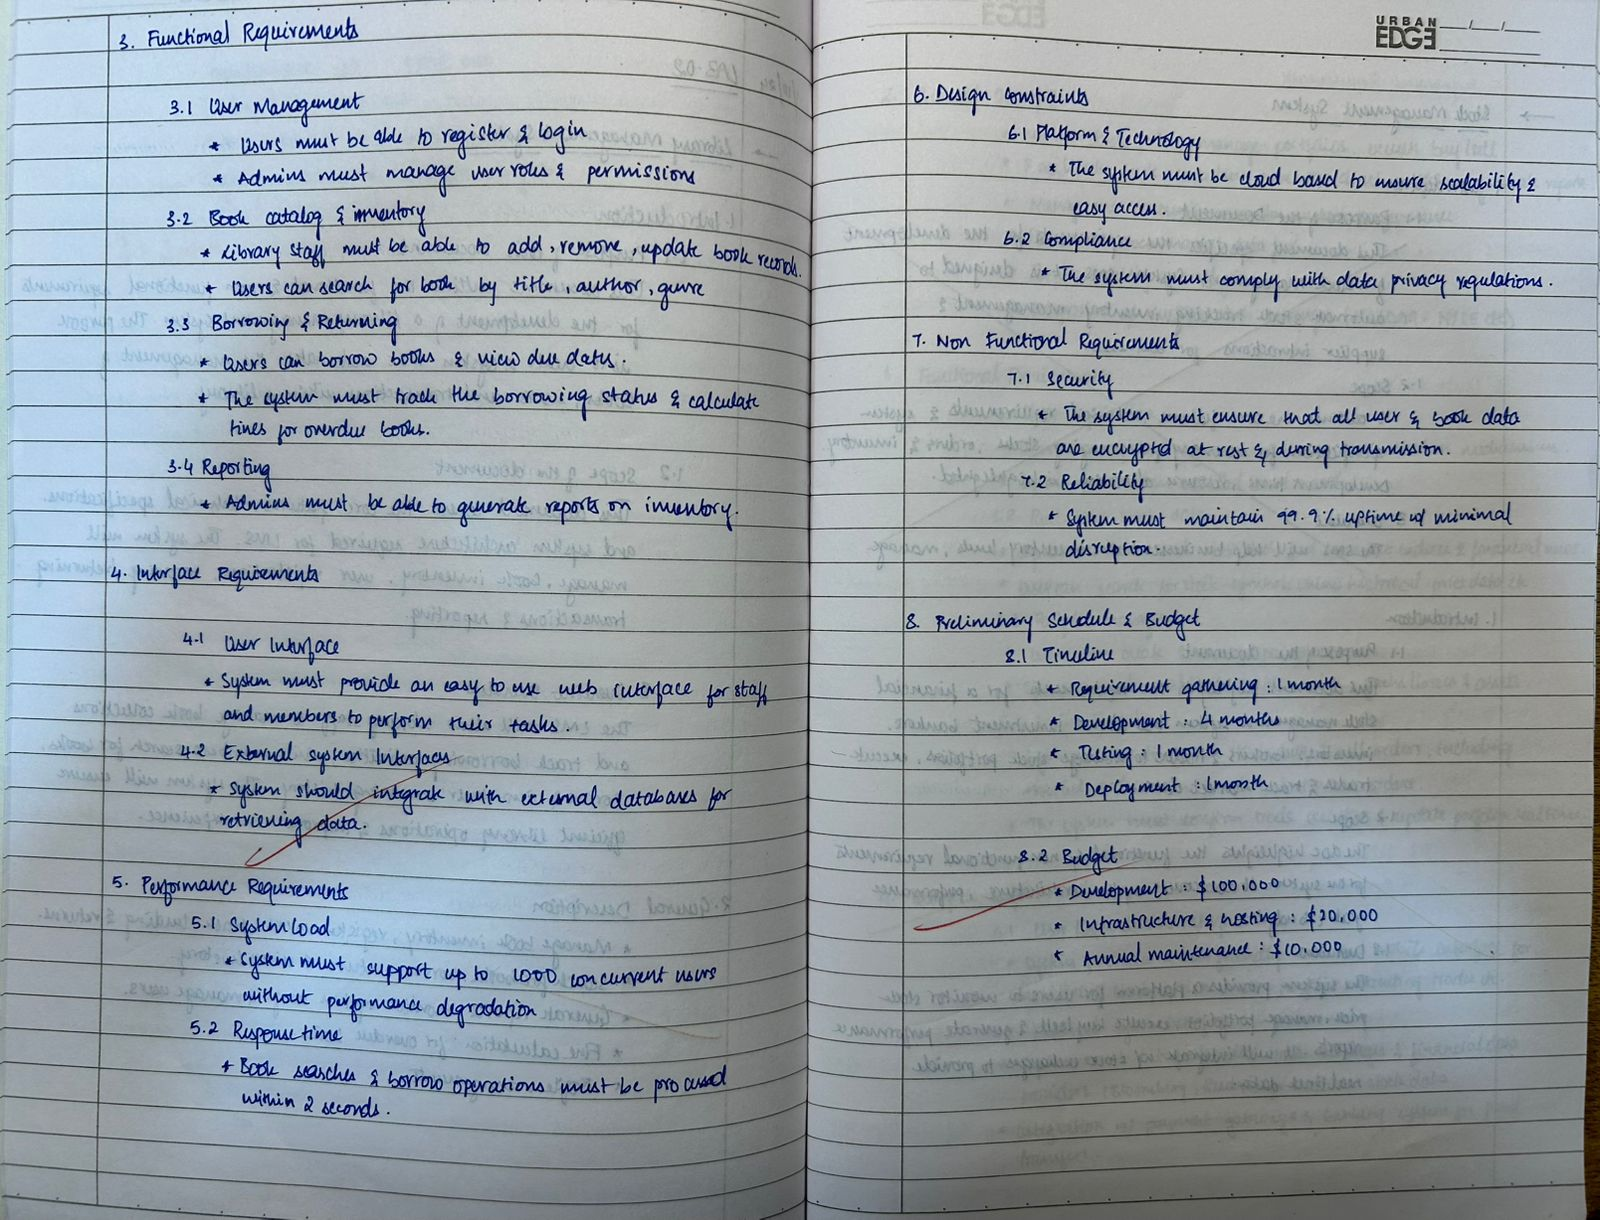 3. Functional Requirements
3.1 User Management
* Users must be able to register & login
* Admins must manage user roles & permissions
3.2 Book catalog & inventory
* Library staff must be able to add, remove, update book records.
* Users can search for book by title, author, genre
3.3 Borrowing & Returning
* Users can borrow books & view due dates.
* The system must track the borrowing status & calculate
fines for overdue books.
3.4 Reporting
* Admins must be able to generate reports on inventory.
4. Interface Requirements
4.1 User Interface
* System must provide an easy to use web interface for staff
and members to perform their tasks.
4.2 External system Interfaces
* System should integrate with external databases for
retrieving data.
5. Performance Requirements
5.1 System Load
* System must support up to 1000 concurrent users
without performance degradation
5.2 Response time
* Book searches & borrow operations must be processed
within 2 seconds.
URBAN
EDGE
6. Design Constraints
6.1 Platform & Technology
* The system must be cloud based to ensure scalability &
easy access.
6.2 Compliance
* The system must comply with data privacy regulations.
7. Non Functional Requirements
7.1 Security
* The system must ensure that all user & book data
are encrypted at rest & during transmission.
7.2 Reliability
* System must maintain 99.9% uptime w/ minimal
disruption.
8. Preliminary Schedule & Budget
8.1 Timeline
* Requirement gathering : 1 month
* Development : 4 months
* Testing : 1 month
* Deployment : 1 month
8.2 Budget
* Development : $100,000
* Infrastructure & hosting : $20,000
* Annual maintenance : $10,000